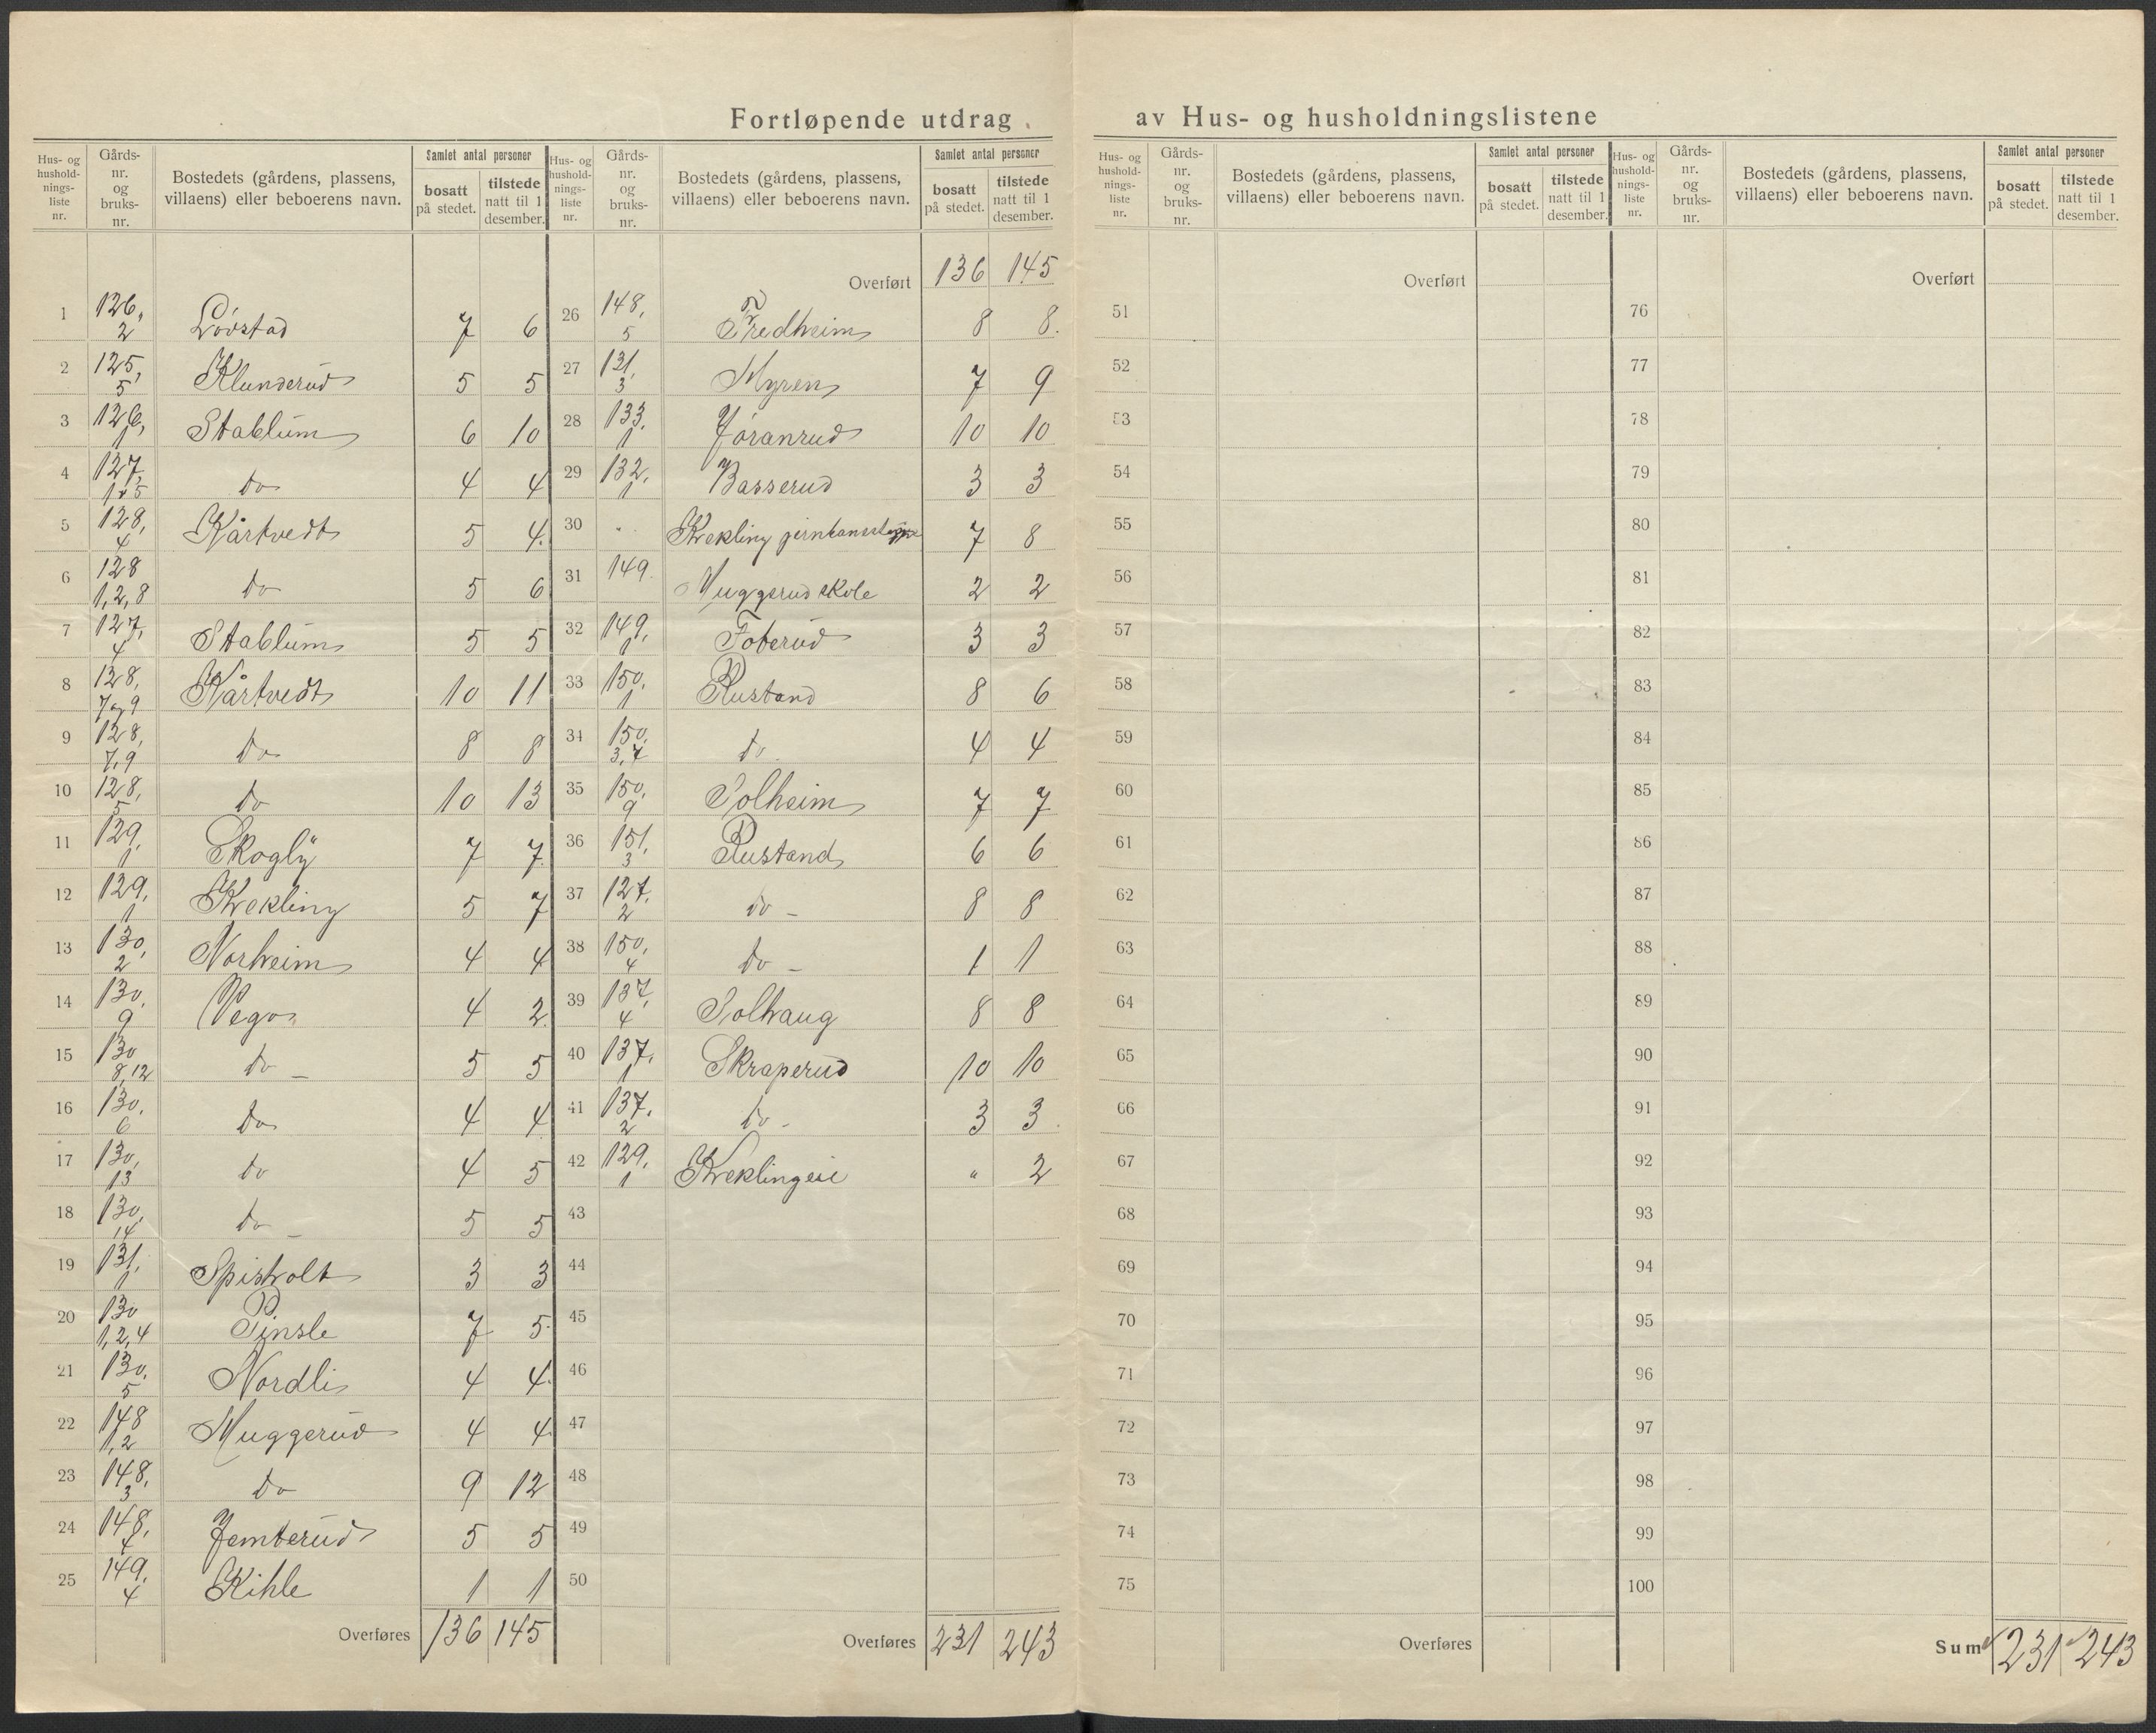 Fortløpende utdrag av Hus- og husholdningslistene
Hus- og hushold-nings-liste nr. Gårds-nr. og bruks-nr. Bostedets (gårdens, plassens, villaens) eller beboerens navn. Samlet antal personer bosatt på stedet. tilstede natt til 1 desember.
1 126, 2 Lövstad 7 6
2 125, 5 Klunderud 5 5
3 126, 1 Stablum 6 10
4 127, 1 & 5 do 4 4
5 128, 4 Kårtvedt 5 4.
6 128 1, 2, 8 do 5 6
7 127, 4 Stablum 5 5
8 128, 7 og 9 Kårtvedt 10 11
9 128, 7, 9 do 8 8
10 128, 5 do 10 13
11 129, 1 Skogly 7 7.
12 129, 1 Krekling 5 7
13 130, 2 Norheim 4 4
14 130, 9 Vego 4 2.
15 130 8, 12 do - 5 5
16 130, 6 do 4 4
17 130, 13 do 4 5
18 130, 14 do - 5 5
19 131, 1 Spisholt 3 3
20 130 1, 2, 4 Pinsle 7 5.
21 130, 5 Nordli 4 4.
22 148 1, 2 Muggerud 4 4
23 148, 3 do 9 12
24 148, 4 Jemterud 5 5
25 149, 4 Kihle 1 1
Overføres 136 145
Hus- og hushold-nings-liste nr. Gårds-nr. og bruks-nr. Bostedets (gårdens, plassens, villaens) eller beboerens navn. Samlet antal personer bosatt på stedet. tilstede natt til 1 desember.
Overført 136 145
26 148, 5 Fredheim 8 8.
27 131, 3 Myren 7 9
28 133, 1 Jøranrud 10 10
29 132, 1 Basserud 3 3
30 " Krekling 7 8
31 149. Muggerud skole 2 2
32 149, 1 Foterud 3 3
33 150, 1 Rustand 8 6
34 150, 3, 7 do. 4 4
35 150, 9 Solheim 7 7
36 151, 3 Rustand 6 6
37 127, 2 do - 8 8
38 150, 4 do - 1 1
39 137, 4 Solhaug 8 8
40 137, 1 Skraperud 10 10
41 137, 2 do - 3 3.
42 129, 1 Kreklingeie " 2
43
44
45
46
47
48
49
50
Overføres 231 243
Hus- og hushold-nings-liste nr. Gårds-nr. og bruks-nr. Bostedets (gårdens, plassens, villaens) eller beboerens navn. Samlet antal personer bosatt på stedet. tilstede natt til 1 desember.
Overført
51
52
53
54
55
56
57
58
59
60
61
62
63
64
65
66
67
68
69
70
71
72
73
74
75
Overføres
Hus- og hushold-nings-liste nr. Gårds-nr. og bruks-nr. Bostedets (gårdens, plassens, villaens) eller beboerens navn. Samlet antal personer bosatt på stedet. tilstede natt til 1 desember.
Overført
76
77
78
79
80
81
82
83
84
85
86
87
88
89
90
91
92
93
94
95
96
97
98
99
100
Sum 231 243